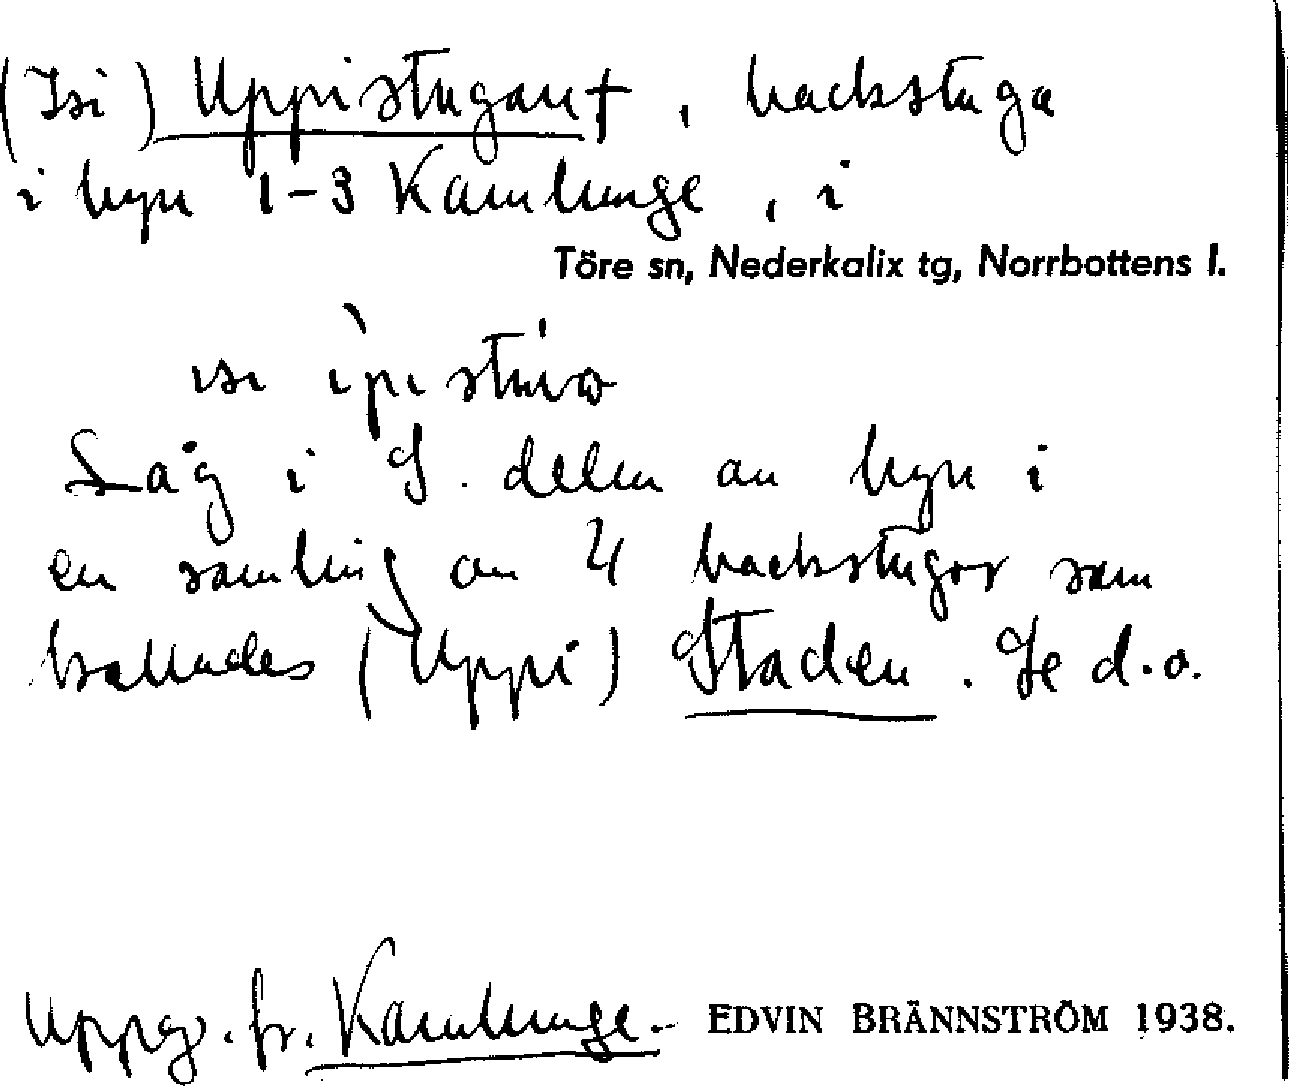 (Isi) Uppistugan †, backstuga
i byn 1-3 Kamlunge, i
Töre sn, Nederkalix tg, Norrbottens l.
isi
Låg i S. delen av byn i
en samling av 4 backstugor som
kallades (Uppi) Staden. Se d.o.
Uppg. fr. Kamlunge. EDVIN BRÄNNSTRÖM 1938.